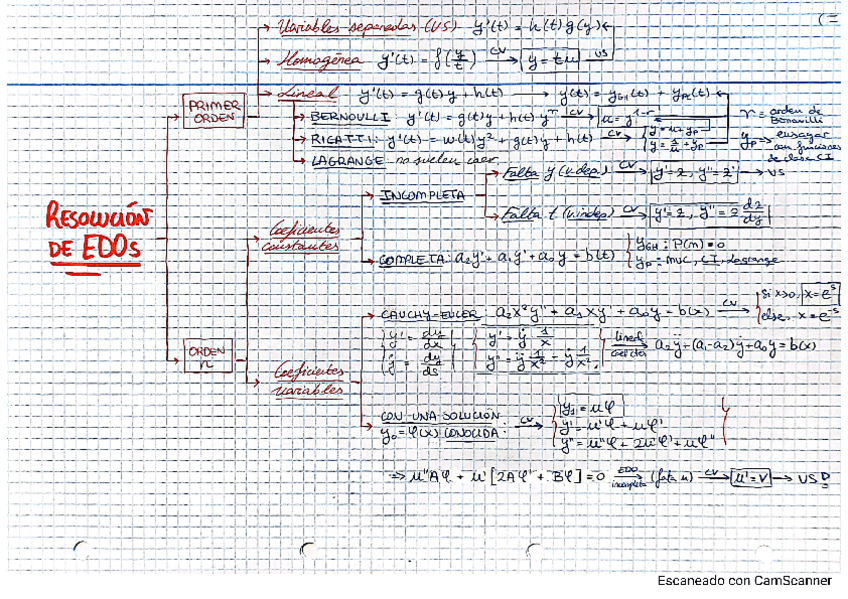 Variables separadas (VS) y'(t) = h(t) g(y)
Homogénea y'(t) = f(y/t) CV → y = tu VS
Lineal y'(t) = g(t)y + h(t) → y(t) = y_GH(t) + y_P(t)
PRIMER ORDEN
BERNOULLI: y'(t) = g(t)y + h(t) y^r CV → u = y^1-r
r = orden de Bernoulli
RICATTI: y'(t) = w(t)y² + g(t)y + h(t) CV → y = u + y_P
y = 1/u + y_P
y_P ⇒ ensayar con funciones de clase CI
LAGRANGE no suelen caer
RESOLUCIÓN DE EDOs
Coeficientes constantes
INCOMPLETA
Falta y (v. dep) CV → y' = z, y'' = z' → VS
Falta t (v. indep) CV → y' = z, y'' = z dz/dy
COMPLETA: a₂y'' + a₁y' + a₀y = b(t)
y_GH: P(m) = 0
y_P: MVC, CI, Lagrange
ORDEN n
Coeficientes variables
CAUCHY-EULER: a₂x²y'' + a₁xy' + a₀y = b(x) CV →
Si x>0, x = e^s
else, x = -e^s
y' = dy/dx
ẏ = dy/ds
y' = ẏ 1/x
y'' = ÿ 1/x² - ẏ 1/x²
lineal → a₂ÿ + (a₁-a₂)ẏ + a₀y = b(x)
CON UNA SOLUCIÓN
y₀ = φ(x) CONOCIDA. CV →
y₁ = uφ
y' = u'φ + uφ'
y'' = u''φ + 2u'φ' + uφ''
⇒ u''Aφ + u'[2Aφ' + Bφ] = 0 EDO incompleta → (falta u) CV → u' = v → VS
Escaneado con CamScanner